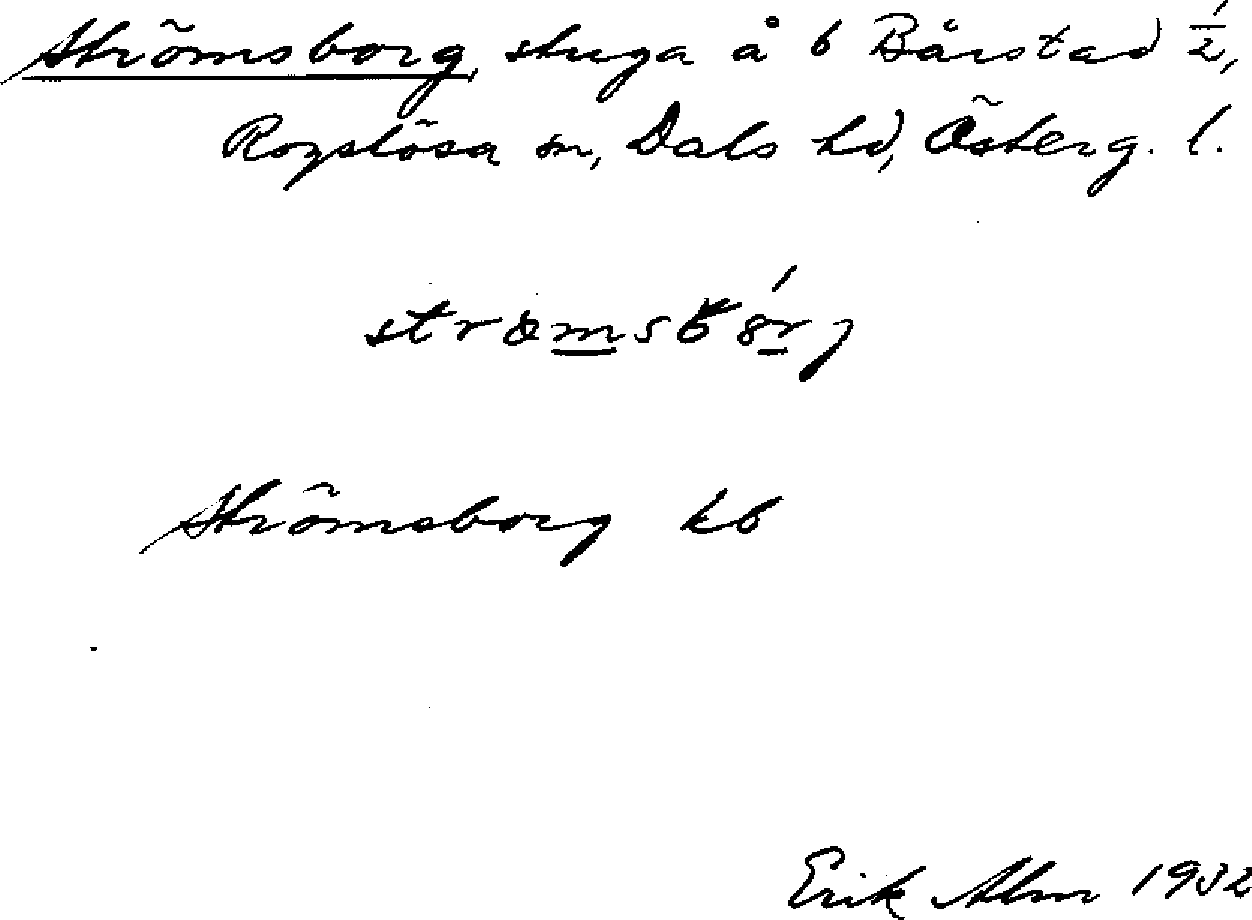 Strömsborg, stuga å b Bårstad 1/2,
Rogslösa sn, Dals hd, Österg. l.
Strömsborg kb
Erik Alm 1932